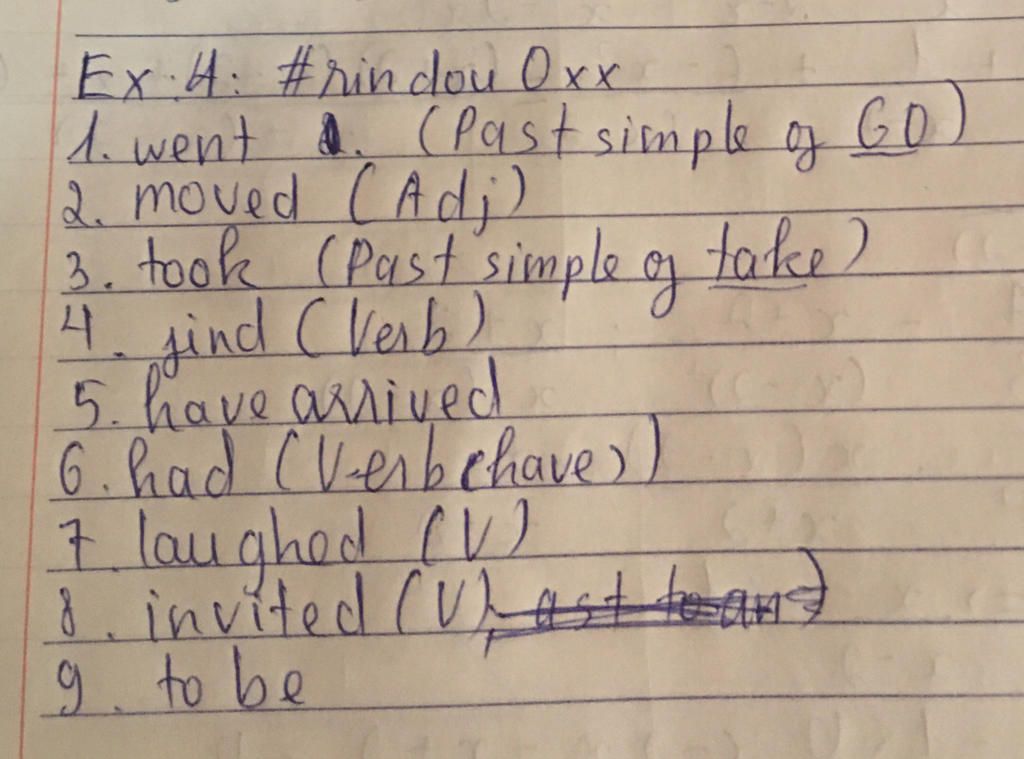 Ex:4: #rindou 0xx
1. went (Past simple of GO)
2. moved (Adj)
3. took (Past simple of take)
4. find (Verb)
5. have arrived
6. had (Verb (have))
7. laughed (V)
8. invited (V), ast to an)
9. to be